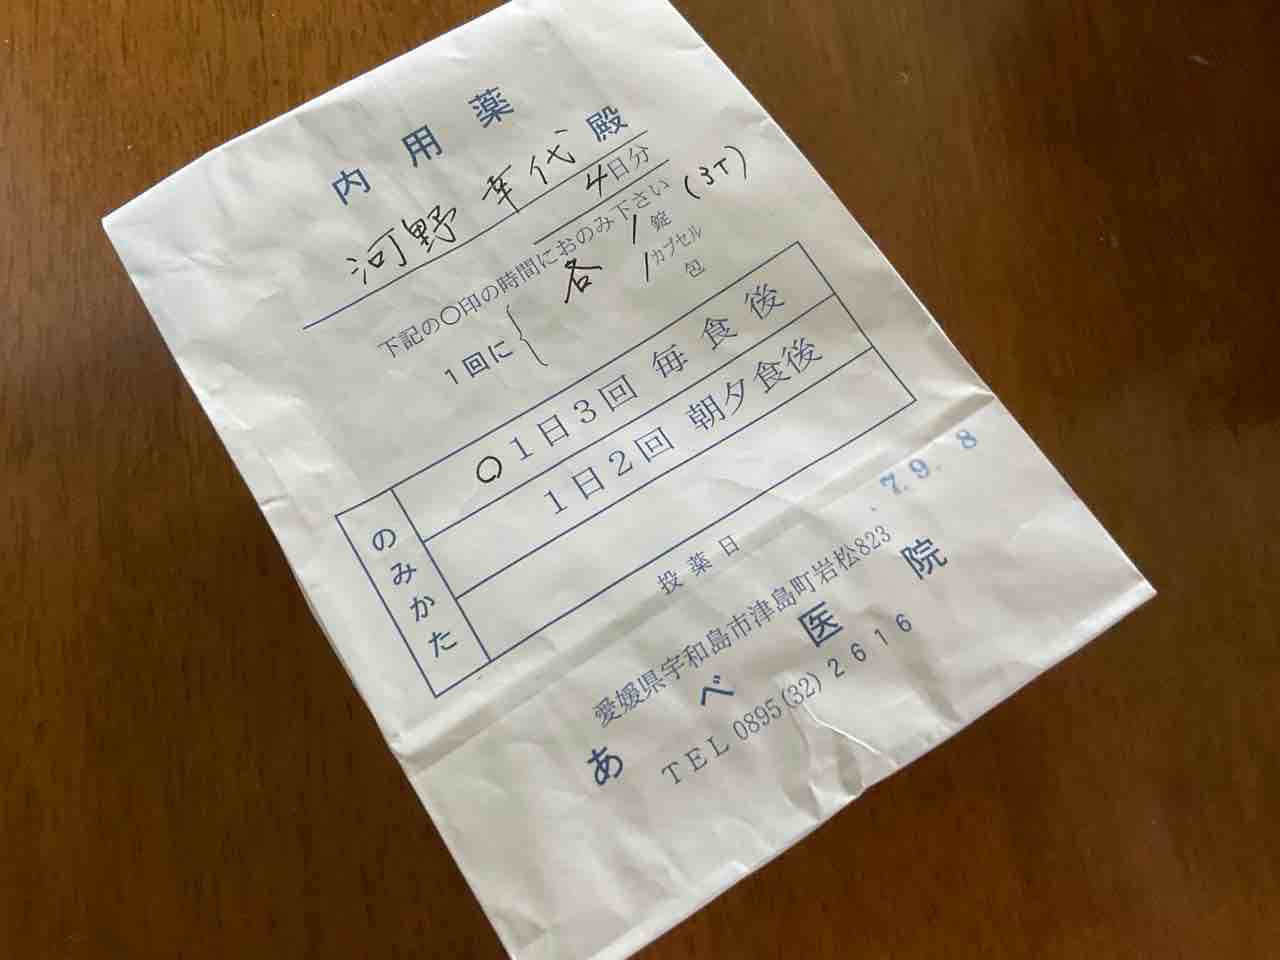 内用薬
河野 幸代 殿
4日分
下記の〇印の時間におのみ下さい
1回に{ 各 1 錠 (3T)
1 カプセル
包
のみかた
〇1日3回 毎食後
1日2回 朝夕食後
投薬日 7.9.8
愛媛県宇和島市津島町岩松823
あべ医院
TEL 0895(32)2616